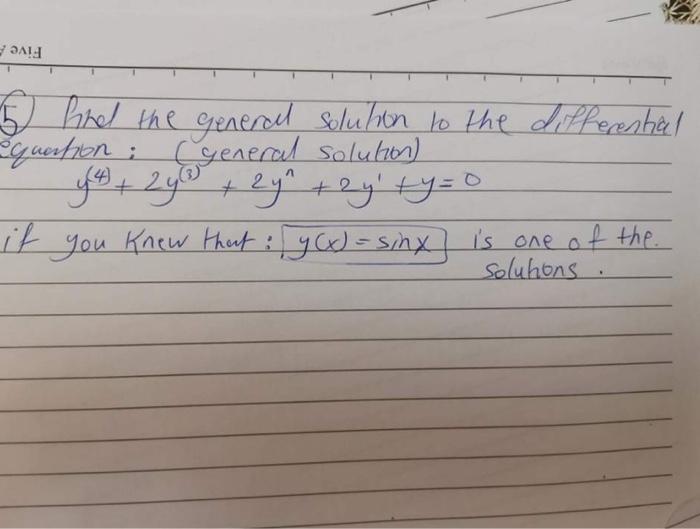 Five
5) find the general solution to the differential
equation : (general solution)
y⁽⁴⁾ + 2y⁽³⁾ + 2y" + 2y' + y = 0
if you knew that : y(x) = sinx is one of the
solutions .